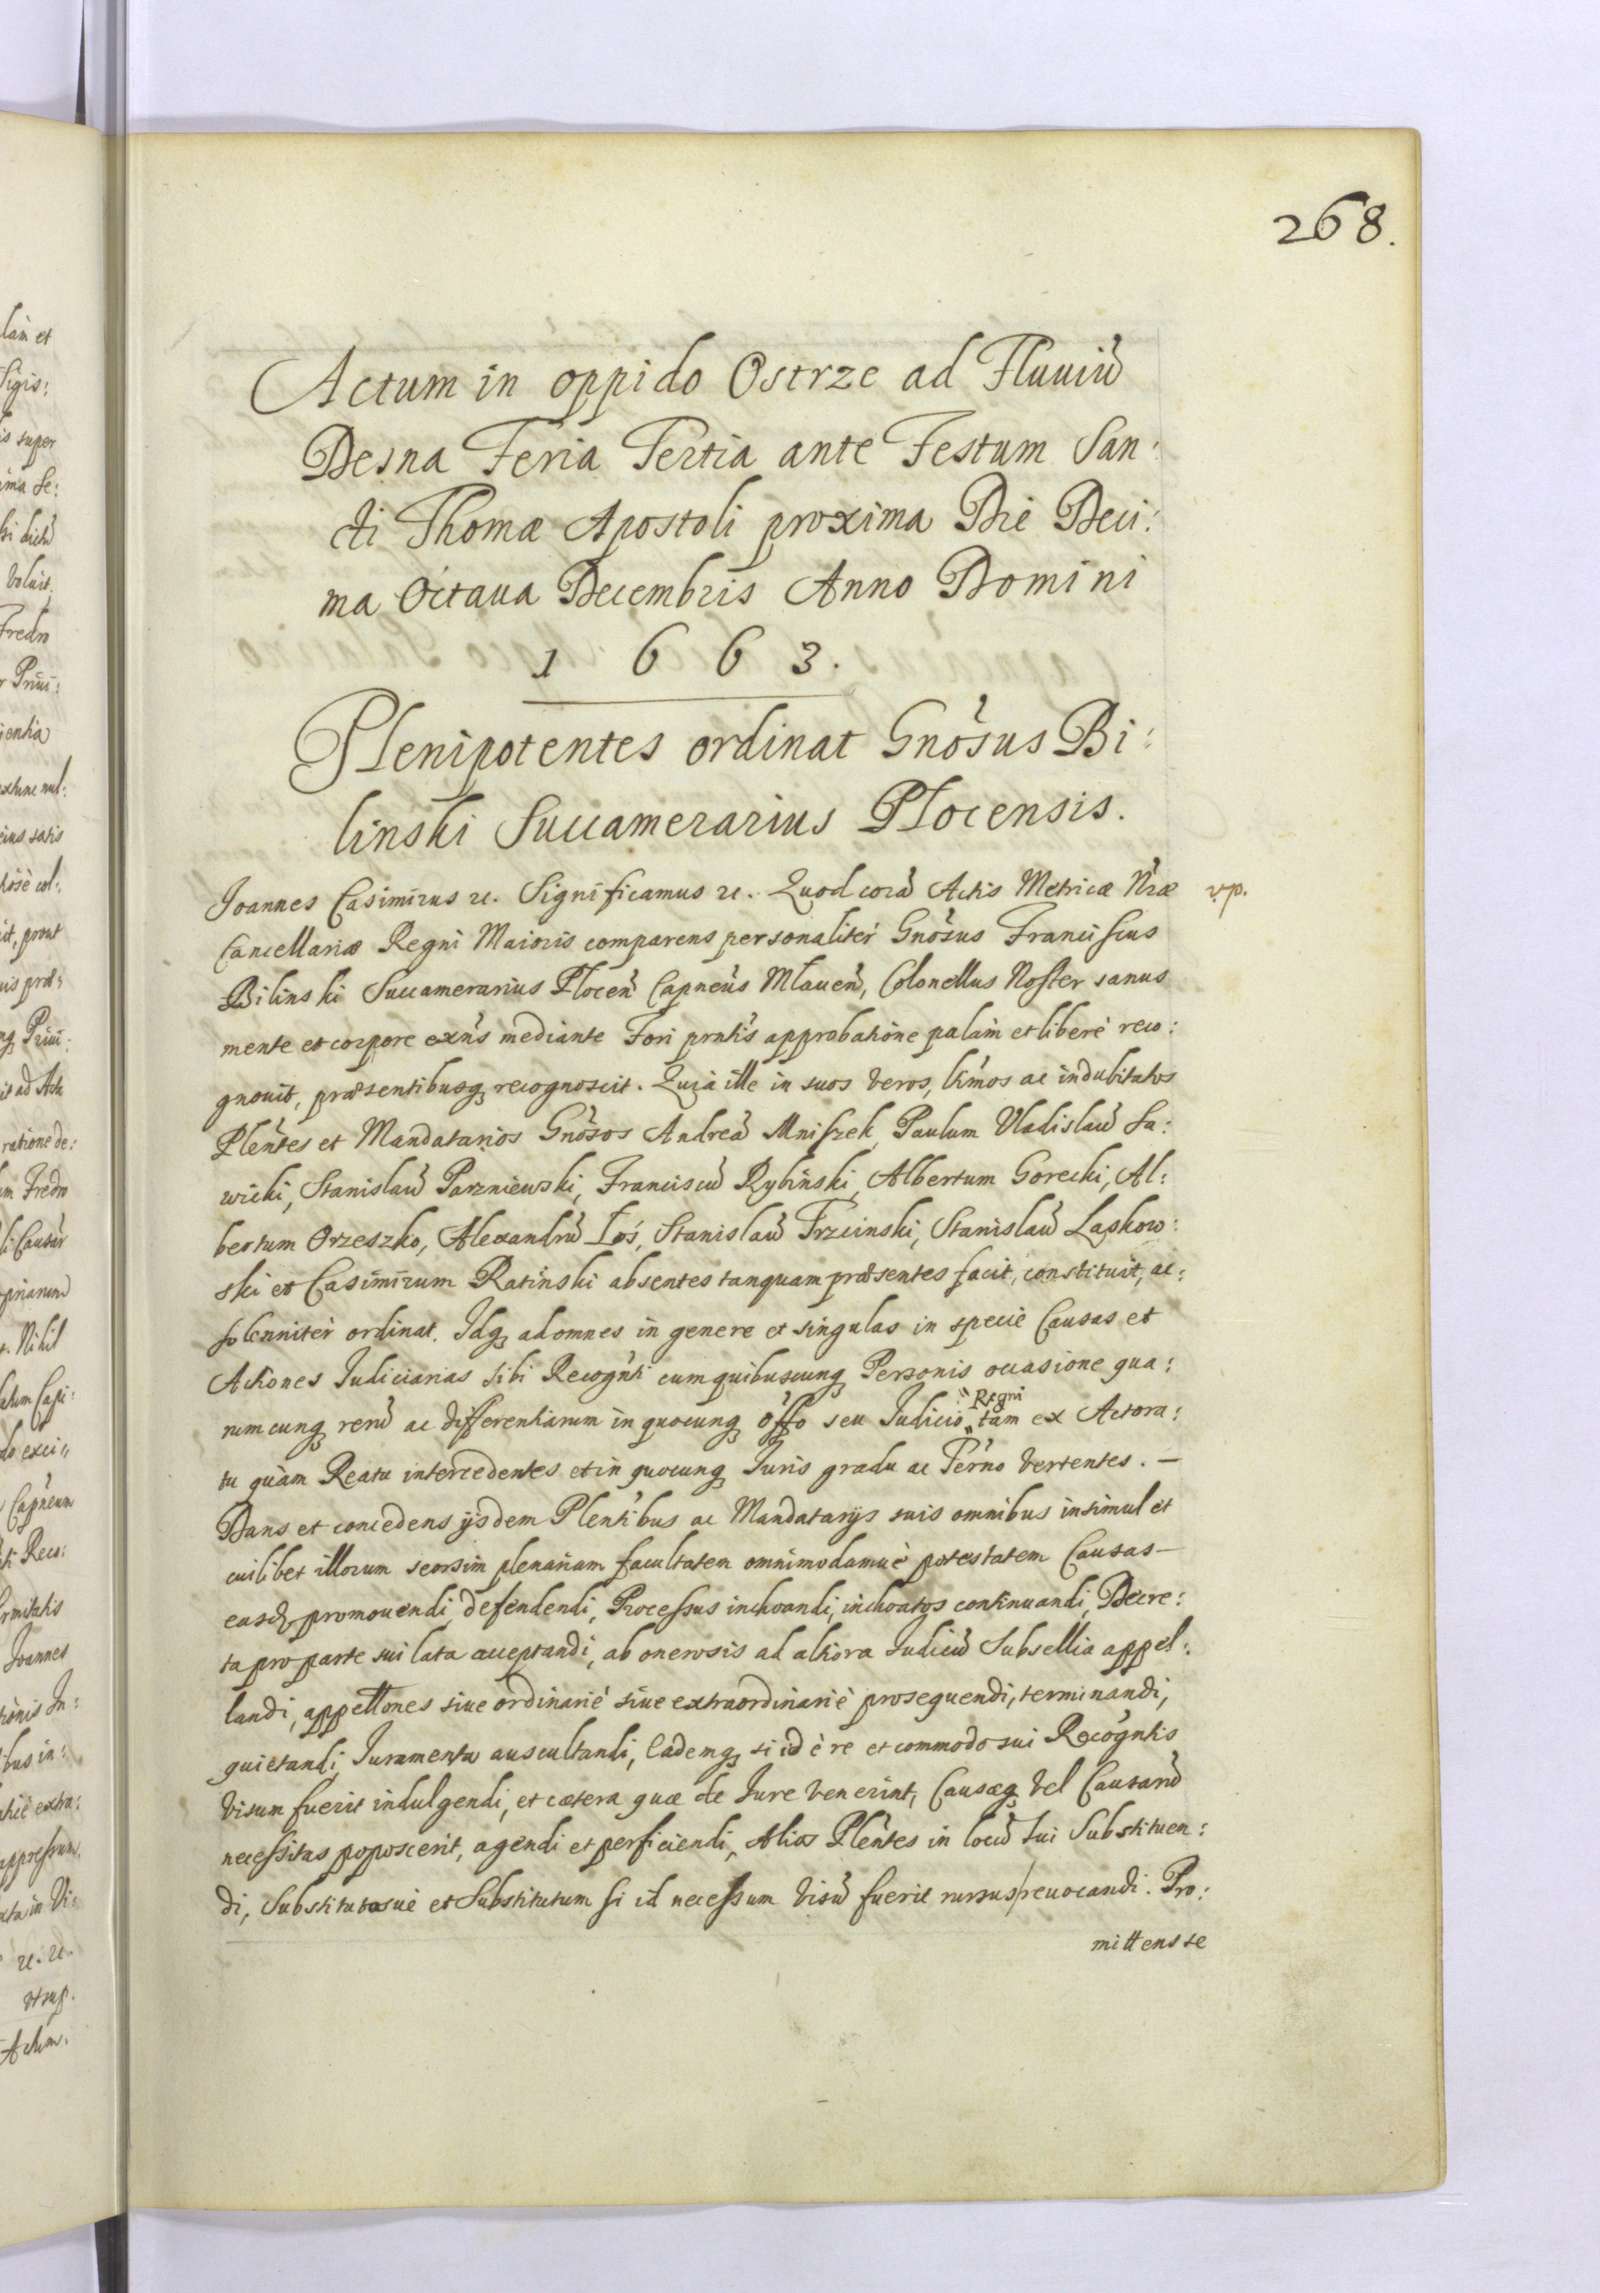 268.
Actum in oppido Ostrze ad Fluuiũ
Desna Feria Tertia ante Festum San:
cti Thomæ Apostoli proxima Die Deci:
ma Octaua Decembris Anno Domini
1663.
Plenipotentes ordinat Gnosus Bi:
linski Succamerarius Plocensis.
Joannes Casimirus etc. Significamus etc. Quod corã Actis Metricæ Nræ
vp.
Cancellariæ Regni Maioris comparens personalitèr Gnosus Franciscus
Bilinski Succamerarius Plocen̄ Capneus Mlauen̄, Colonellus Noster sanus
mente et corpore exn̄s mediante Fori prn̄tis approbatione palàm et liberè reco:
gnouit, præsentibusq́ recognoscit. Quià ille in suos veros, ltimos ac indubitatos
Plen̄tes et Mandatarios Gnosos Andreã Mniszek, Paulum Vladislaũ Sa:
wicki, Stanislaũ Parzniewski, Franciscũ Rybinski, Albertum Gorecki, Al:
bertum Orzeszko, Alexandrũ Łoś, Stanislaũ Trzcinski, Stanislaũ Laskow:
ski et Casimirum Ratinski absentes tanquam præsentes facit, constituit, ac:
solennitèr ordinat. Idq́ ad omnes in genere et singulas in specie Causas et
Actiones Judiciarias sibi Recogn̄ti cum quibuscunq́ Personis occasione qua:
rumcunq́ rerũ ac differentiarum in quocunq́ offo seu Judicio Regni tam ex Actora:
tu quàm Reatu intercedentes et in quocunq́ Juris gradu ac Term̄o vertentes. —
Dans et concedens ijsdem Plen̄tibus ac Mandatarijs suis omnibus insimul et
cuilibet illorum seorsim plenariam facultatem omnimodamuè potestatem Causas —
easd́ promouendi, defendendi, Processus inchoandi, inchoatos continuandi, Decre:
ta pro parte sui lata acceptandi, ab onerosis ad altiora Judiciũ Subsellia appel:
landi, appellōnes siue ordinariè siue extraordinariè prosequendi, terminandi,
quietandi, Juramenta auscultandi, eademq́ si id è re et commodo sui Recogn̄tis
visum fuerit indulgendi, et cætera quæ de Jure venerint, Causæq́ vel Causarũ
necessitas poposcerit, agendi et perficiendi, Alios Plen̄tes in locũ sui Substituen:
di, Substitutosuè et Substitutum si id necessum visũ fuerit rursus reuocandi. Pro:
mittens se